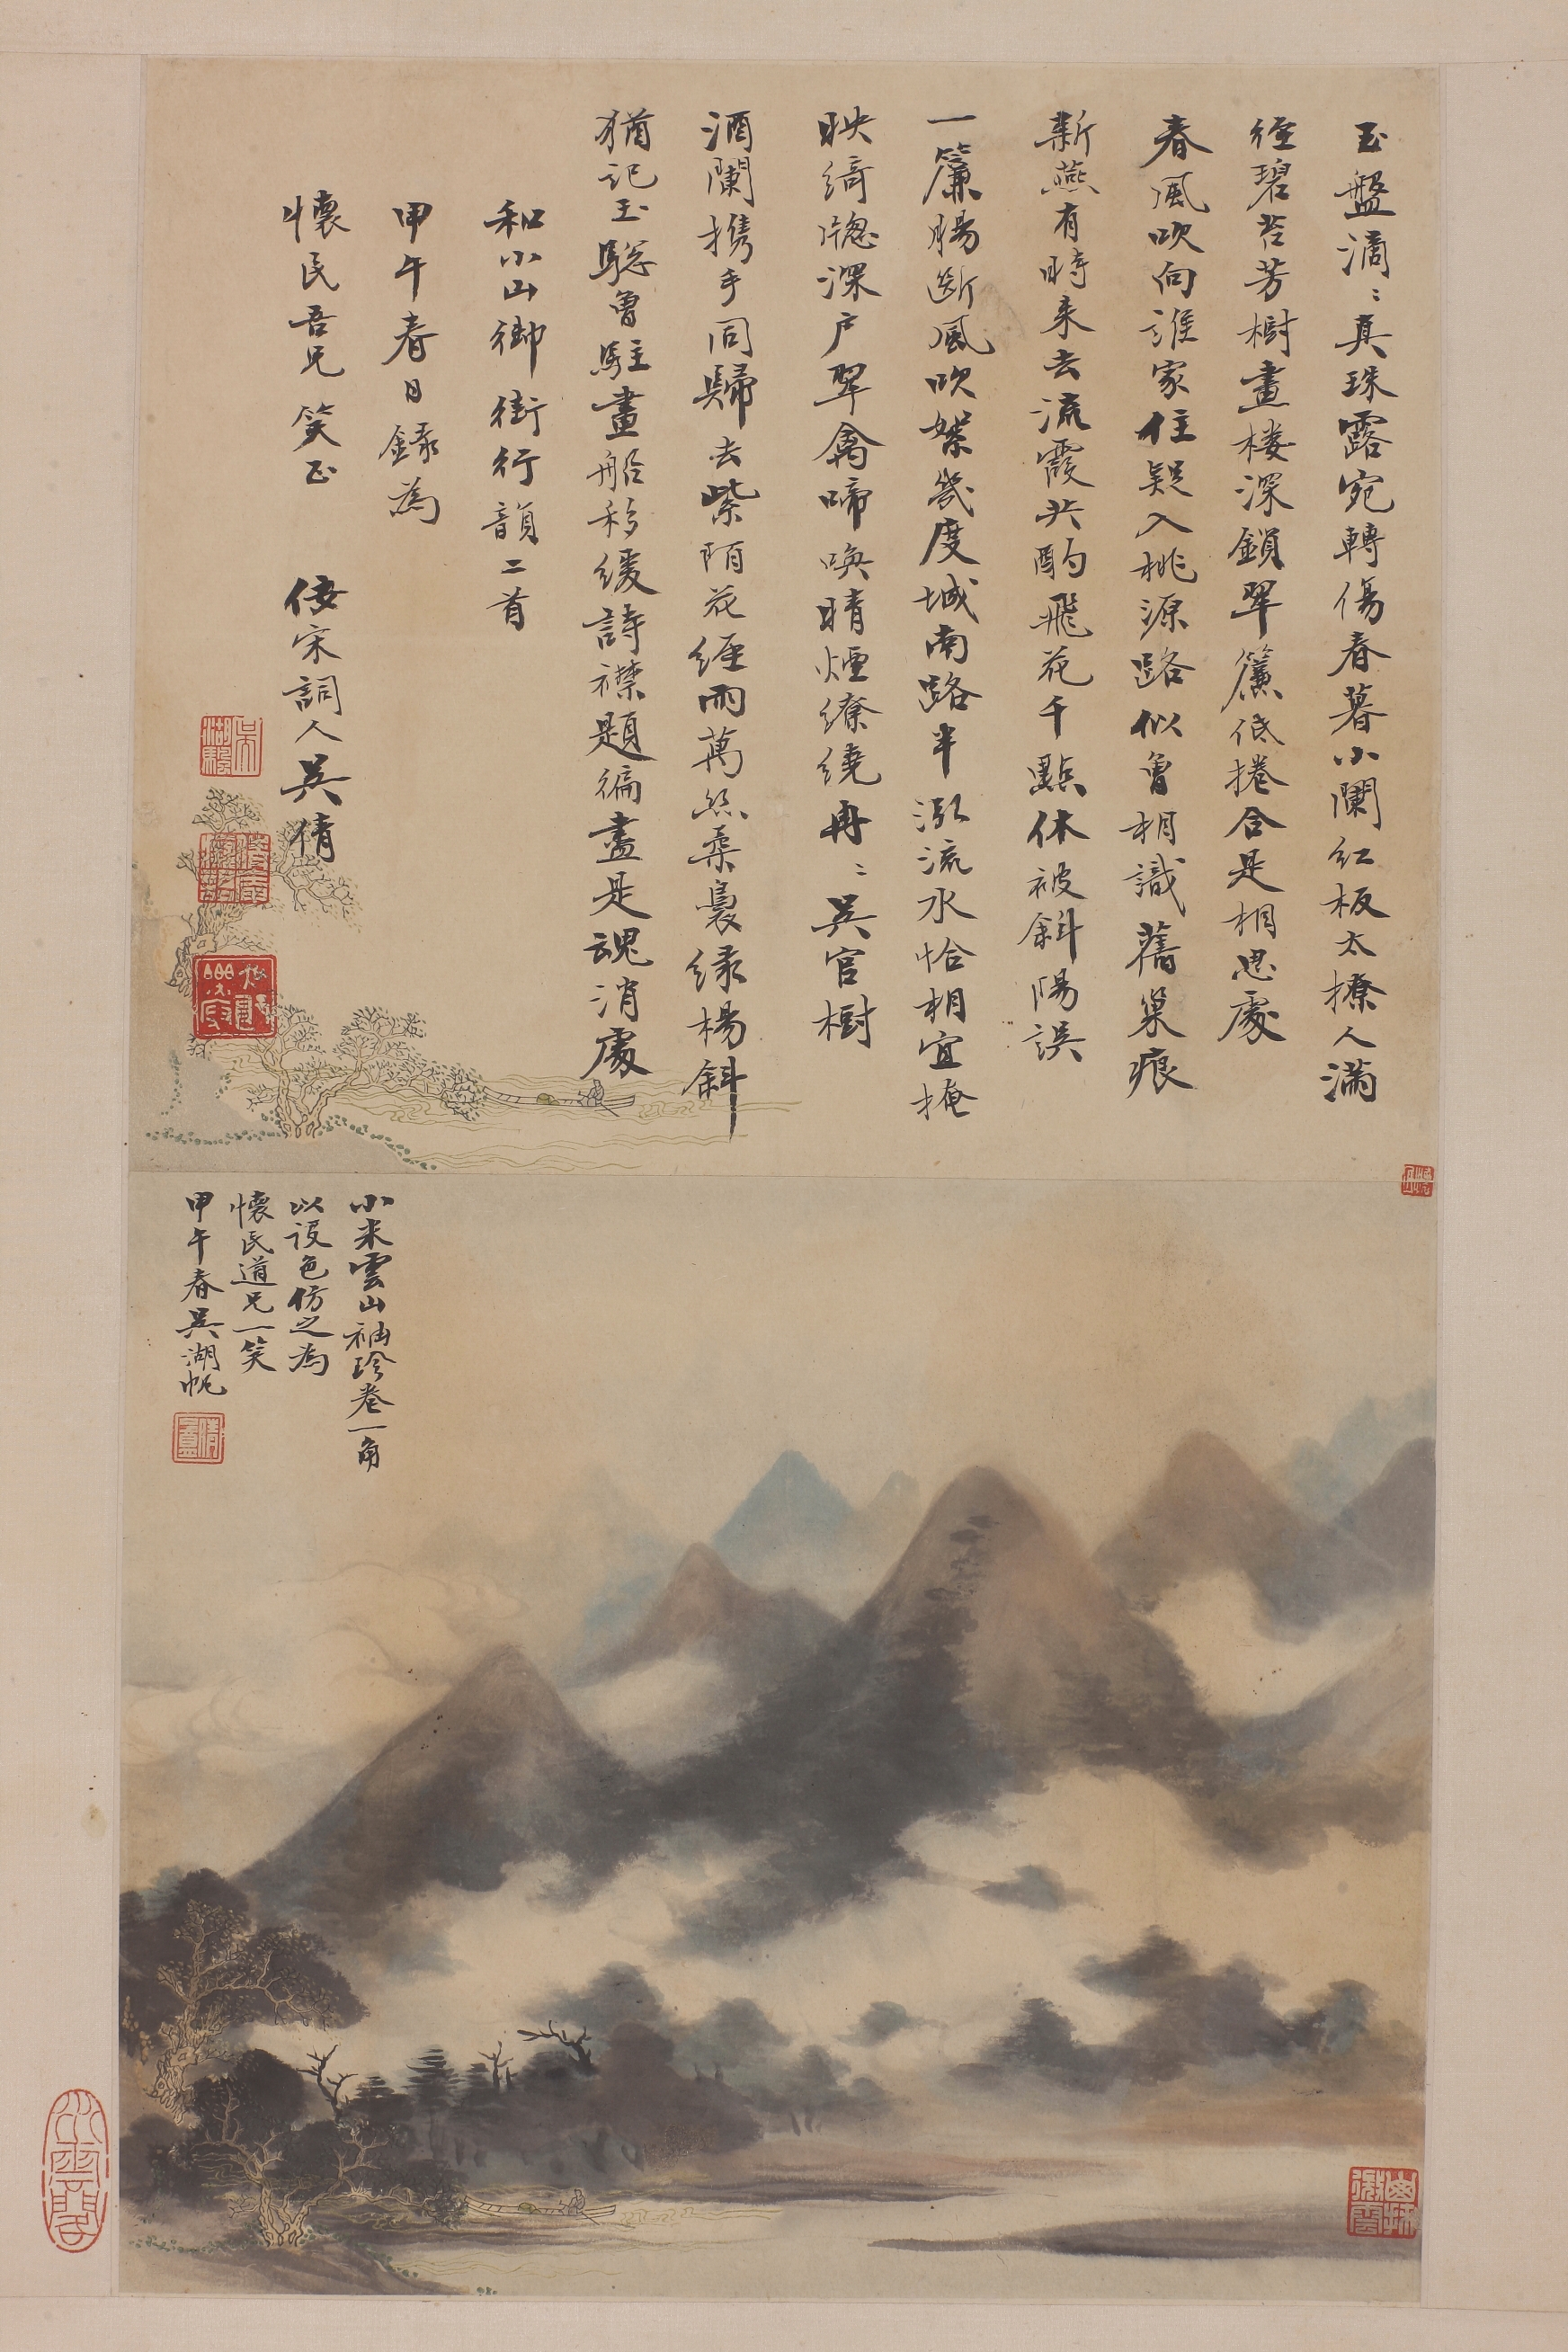 玉盤滴﹕真珠露宛轉傷春暮小闌紅板太撩人滿
徑碧苔芳樹畫樓深鎖翠簾低捲合是相思處
春風吹向誰家住疑入桃源路似曾相識舊巢痕
新燕有時来去流霞共酌飛花千點休被斜陽誤
一簾腸斷風吹絮幾度城南路半泓流水恰相宜掩
映綺牕深户翠禽啼喚晴煙繚繞冉﹕吳宮樹
酒闌携手同歸去紫陌花經雨萬絲柔裊緑楊斜
猶記玉驄曾駐畫船移緩詩襟題徧盡是魂消處
和小山御街行韻二首
甲午春日録為
懷民吾兄笑正
佞宋詞人吳倩
小米雲山袖珍卷一角
以設色仿之為
懷民道兄一笑
甲午春吳湖帆